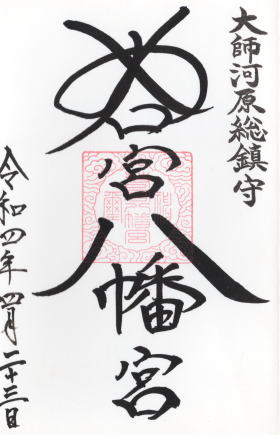 大師河原総鎮守
若宮八幡宮
令和四年四月二十三日